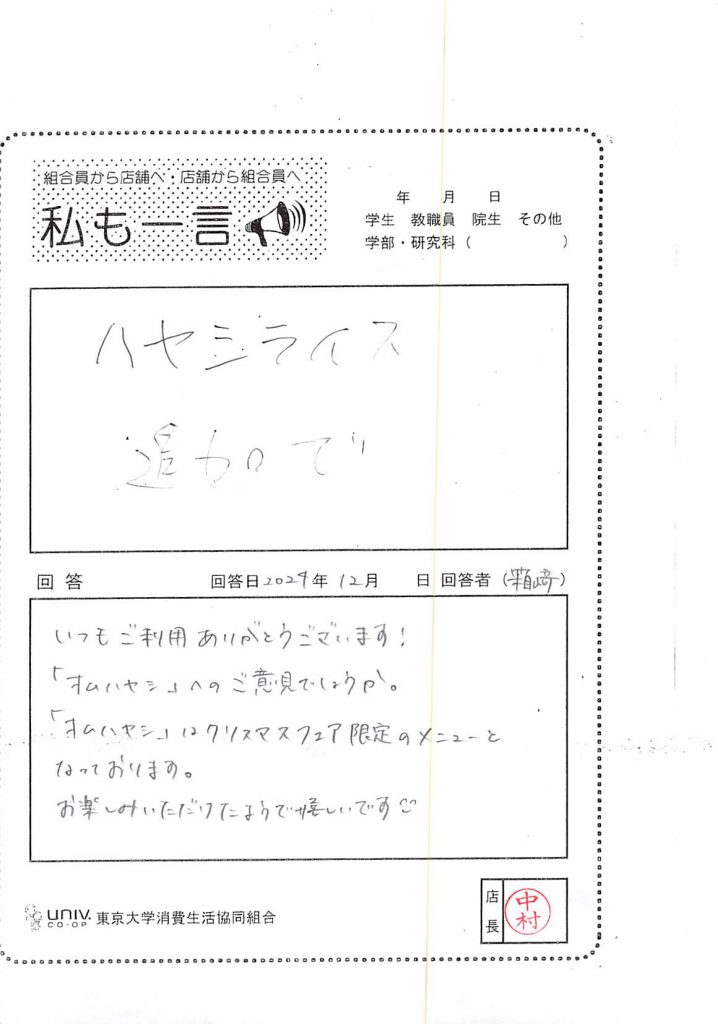 組合員から店舗へ・店舗から組合員へ
私も一言
年 月 日
学生 教職員 院生 その他
学部・研究科 ( )
ハヤシライス
追加で
回答 回答日2024年 12月 日 回答者 (箱崎)
いつもご利用ありがとうございます!
「オムハヤシ」へのご意見でしょうか。
「オムハヤシ」はクリスマスフェア限定のメニューと
なっております。
お楽しみいただけたようで嬉しいです
UNIV. CO-OP 東京大学消費生活協同組合
店長
中村